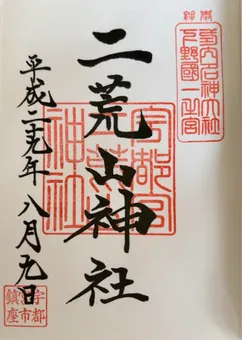 式内名神大社
下野國一之宮
二荒山神社
宇都宮
二荒山
神社
平成二十九年八月九日
宇都
宮市
鎮座